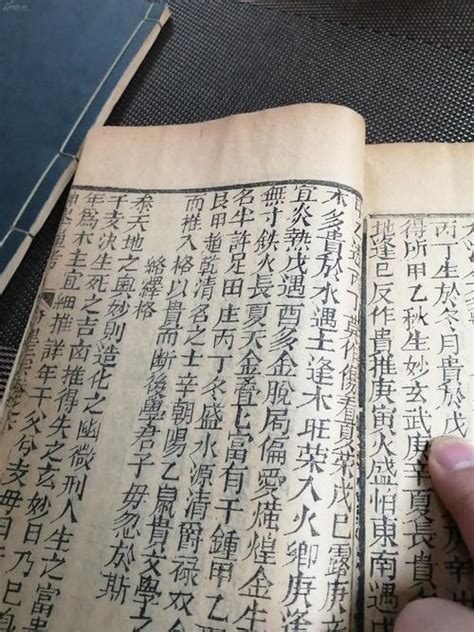 丙丁生於冬月貴於
得所甲乙秋生妙玄武庚辛夏長貴
地逢巳反作貴推庚寅火盛怕東南遇
丙丁莫作傷看貢榮戊巳露庚
木多貴於水遇土逢木旺榮入火卿庚逢
宜炎熱戊遇酉多金脫局偏愛熿煌金生
無寸鉄火長夏天金疊七富有千鍾甲乙
名牛許足田庄丙丁冬盛水源清爵禄双
艮甲趋乾清名之士辛朝陽乙鼠貴文學之
而推入格以貴而断後學君子毋忽於斯
絡繹格
叅天地之奥妙則造化之幽微刑人生之富貴
干支决生死之吉凶推得失之玄妙日乃
年為木主宜細推詳年干父兮支母日